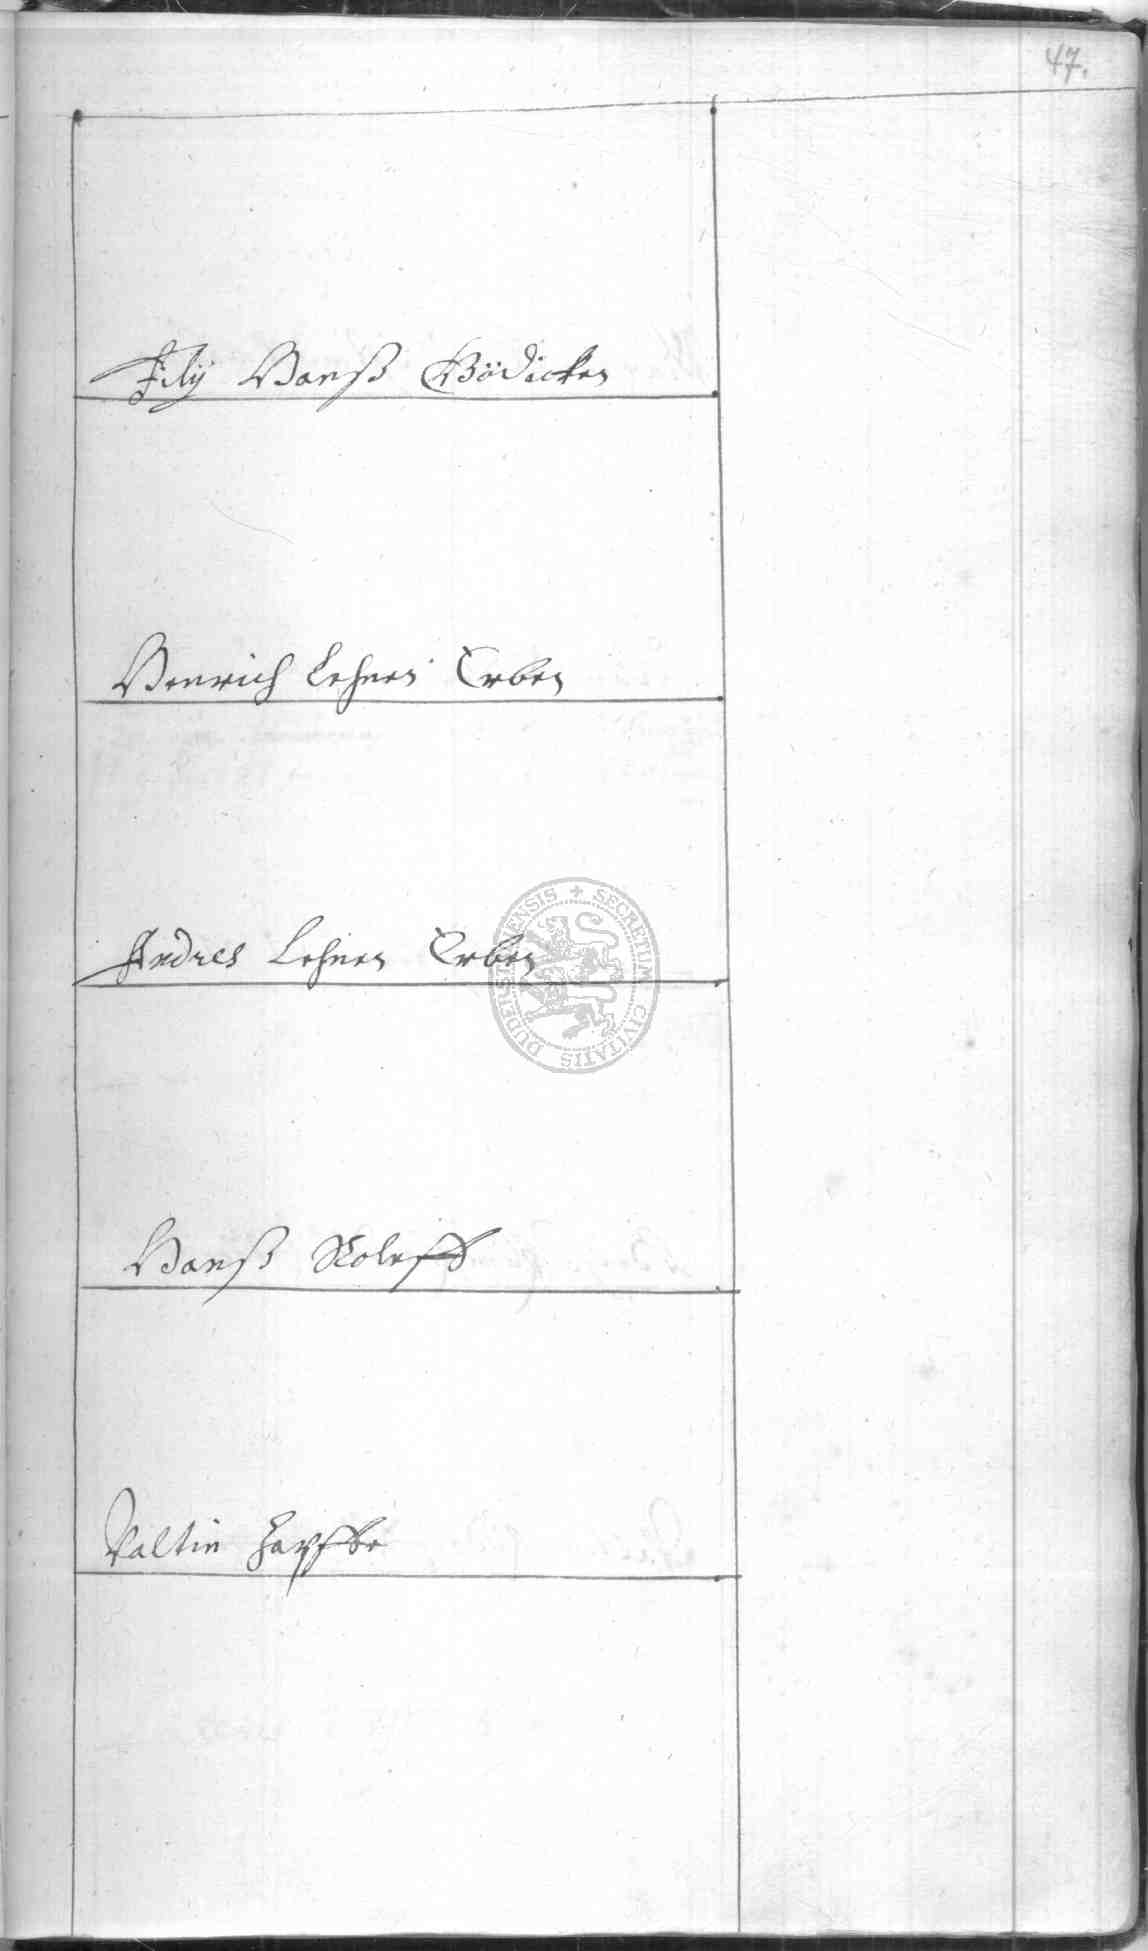 47.
Filÿ Hanß Bödicken
Henrich Lehnen Erben
Andres Lehnen Erben
SECRETUM CIVITATIS DUDERSTADENSIS
Hanß Roleff
Valtin